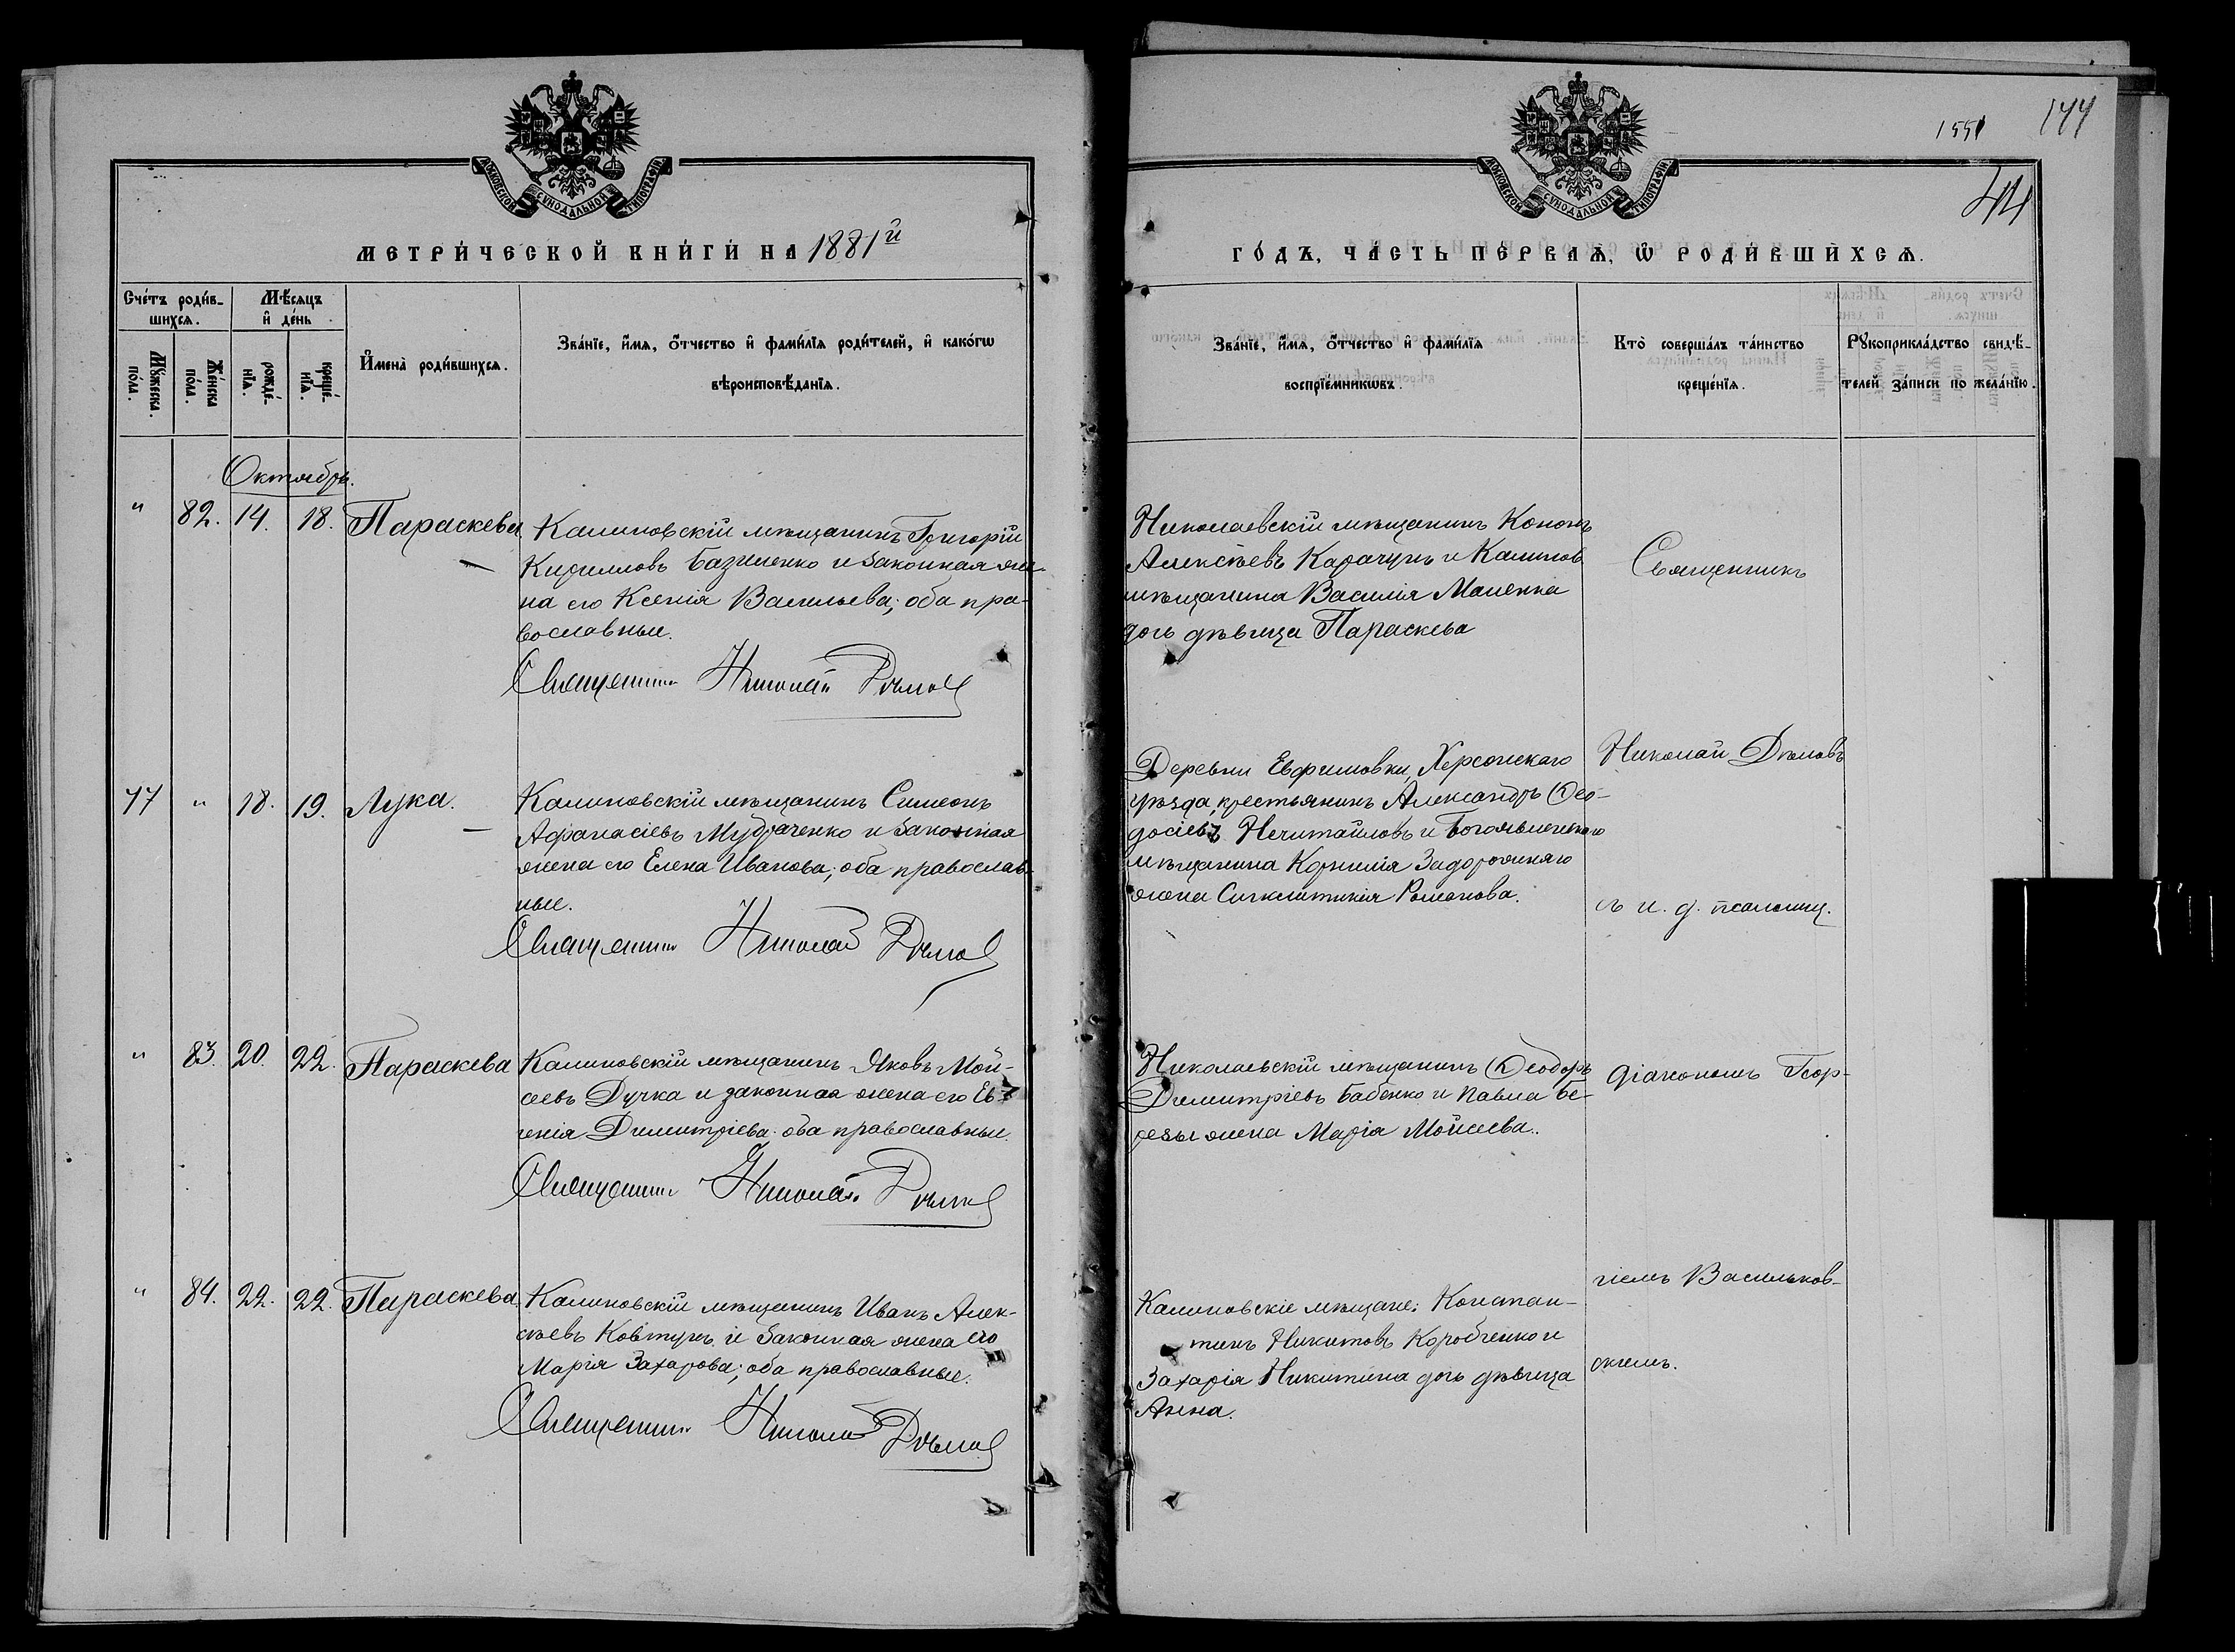 МОСКОВСКОЙ СѴНОДАЛЬНОЙ ТИПОГРАФІИ
МЕТРИ́ЧЕСКОЙ КНИ́ГИ НА 1881й
Сче́тъ роди́в-
шихсѧ.
Мѣ́сѧцъ
и҆ де́нь
Мꙋ́жеска
по́ла.
Же́нска
по́ла.
рожде́-
нїѧ.
креще́-
нїѧ.
И҆мена̀ роди́вшихсѧ.
Зва́нїе, и҆́мѧ, ѻ҆́тчество и҆ фами́лїѧ роди́телей, и҆ како́гѡ
вѣроисповѣ́данїѧ.
Октябрь.
" 82. 14. 18. Параскева
Калиновскій мѣщанинъ Григорій
Кирилловъ Базиленко и законная же-
на его Ксенія Васильева; оба пра-
вославные.
Священникъ Николай Дѣмов
77 " 18. 19. Лука.
Калиновскій мѣщанинъ Симеонъ
Афанасіевъ Мудраченко и законная
жена его Елена Иванова; оба православ-
ные.
Священникъ Николай Дѣмов
" 83. 20. 22. Параскева
Калиновскій мѣщанинъ Яковъ Мой-
сеевъ Дучка и законная жена его Ев-
генія Димитріева. оба православные.
Священникъ Николай Дѣмов
" 84. 22. 22. Параскева
Калиновскій мѣщанинъ Иванъ Алек-
сѣевъ Ковтунъ и законная жена его
Марія Захарова; оба православные.
Священникъ Николай Дѣмов
1551 144
44
МОСКОВСКОЙ СѴНОДАЛЬНОЙ ТИПОГРАФІИ
ГО́ДЪ, ЧА́СТЬ ПЕ́РВАѦ, Ѡ҆ РОДИ́ВШИХСѦ.
Зва́нїе, и҆́мѧ, ѻ҆́тчество и҆ фами́лїѧ
воспрїе́мникѡвъ.
Кто̀ соверша́лъ та́инство
креще́нїѧ.
Рꙋкоприкла́дство свидѣ́-
телей за́писи по жела́нїю.
Николаевскій мѣщанинъ Кононъ
Алексѣевъ Карачунъ и Калинов
мѣщанина Василія Маненка
дочь дѣвица Параскева
Деревни Евфимовки, Херсонскаго
уѣзда, крестьянинъ Александръ Ѳео-
досіевъ Нечитайловъ и Богоявленскаго
мѣщанина Корнилія Задорожняго
жена Синклитикія Романова.
Николаевскій мѣщанинъ Ѳеодоръ
Димитріевъ Бабенко и Павла Бе-
резы жена Марія Мойсеева.
Калиновскіе мѣщане: Констан-
тинъ Никитовъ Коробченко и
Захарія Никитина дочь дѣвица
Анна.
Священникъ
Николай Дѣмовъ
съ и. д. псаломщ.
діакономъ Геор-
гіемъ Васильков-
скимъ.